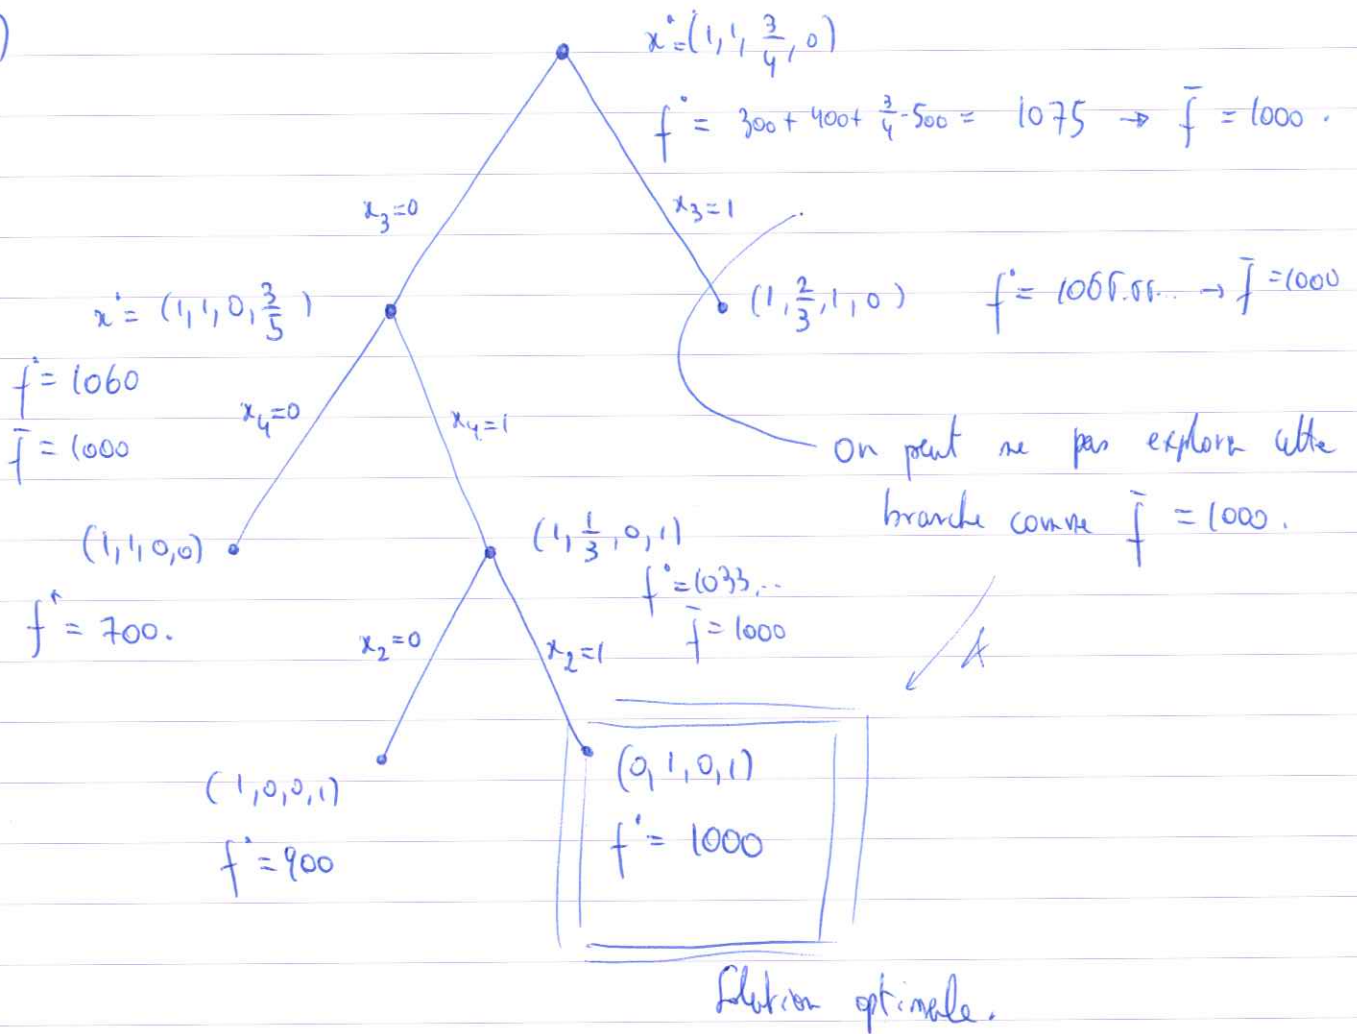 )
x* = (1, 1, 3/4, 0)
f* = 300 + 400 + 3/4 · 500 = 1075 → f̄ = 1000.
x₃=0
x₃=1
x* = (1, 1, 0, 3/5)
(1, 2/3, 1, 0) f* = 1066.66... → f̄ = 1000
f* = 1060
f̄ = 1000
x₄=0
x₄=1
On peut ne pas explorer cette
branche comme f̄ = 1000.
(1, 1, 0, 0)
f* = 700.
(1, 1/3, 0, 1)
f* = 1033,..
f̄ = 1000
x₂=0
x₂=1
(1, 0, 0, 1)
f* = 900
(0, 1, 0, 1)
f* = 1000
Solution optimale.